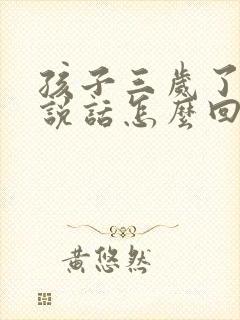 孩子三歲了
說話怎麼回
黃悠然